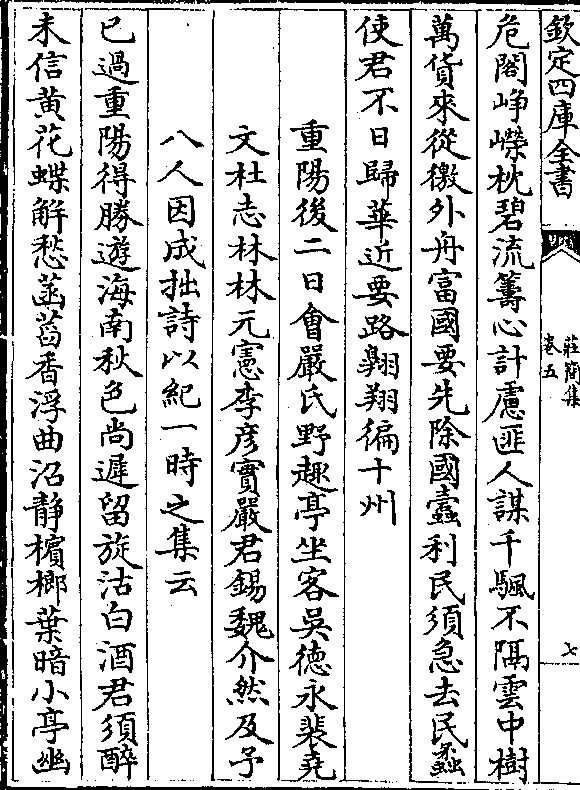 欽定四庫全書
莊簡集
卷五
七
危閣崢嶸枕碧流籌心計慮匪人謀千颿不隔雲中樹
萬貨來從徼外舟富國要先除國蠹利民須急去民蟊
使君不日歸華近要路翺翔徧十州
重陽後二日會嚴氏野趣亭坐客吳德永裴堯
文杜志林林元憲李彦實嚴君錫魏介然及予
八人因成拙詩以紀一時之集云
已過重陽得勝遊海南秋色尚遲留旋沽白酒君須醉
未信黄花蝶解愁菡萏香浮曲沼静檳榔葉暗小亭幽